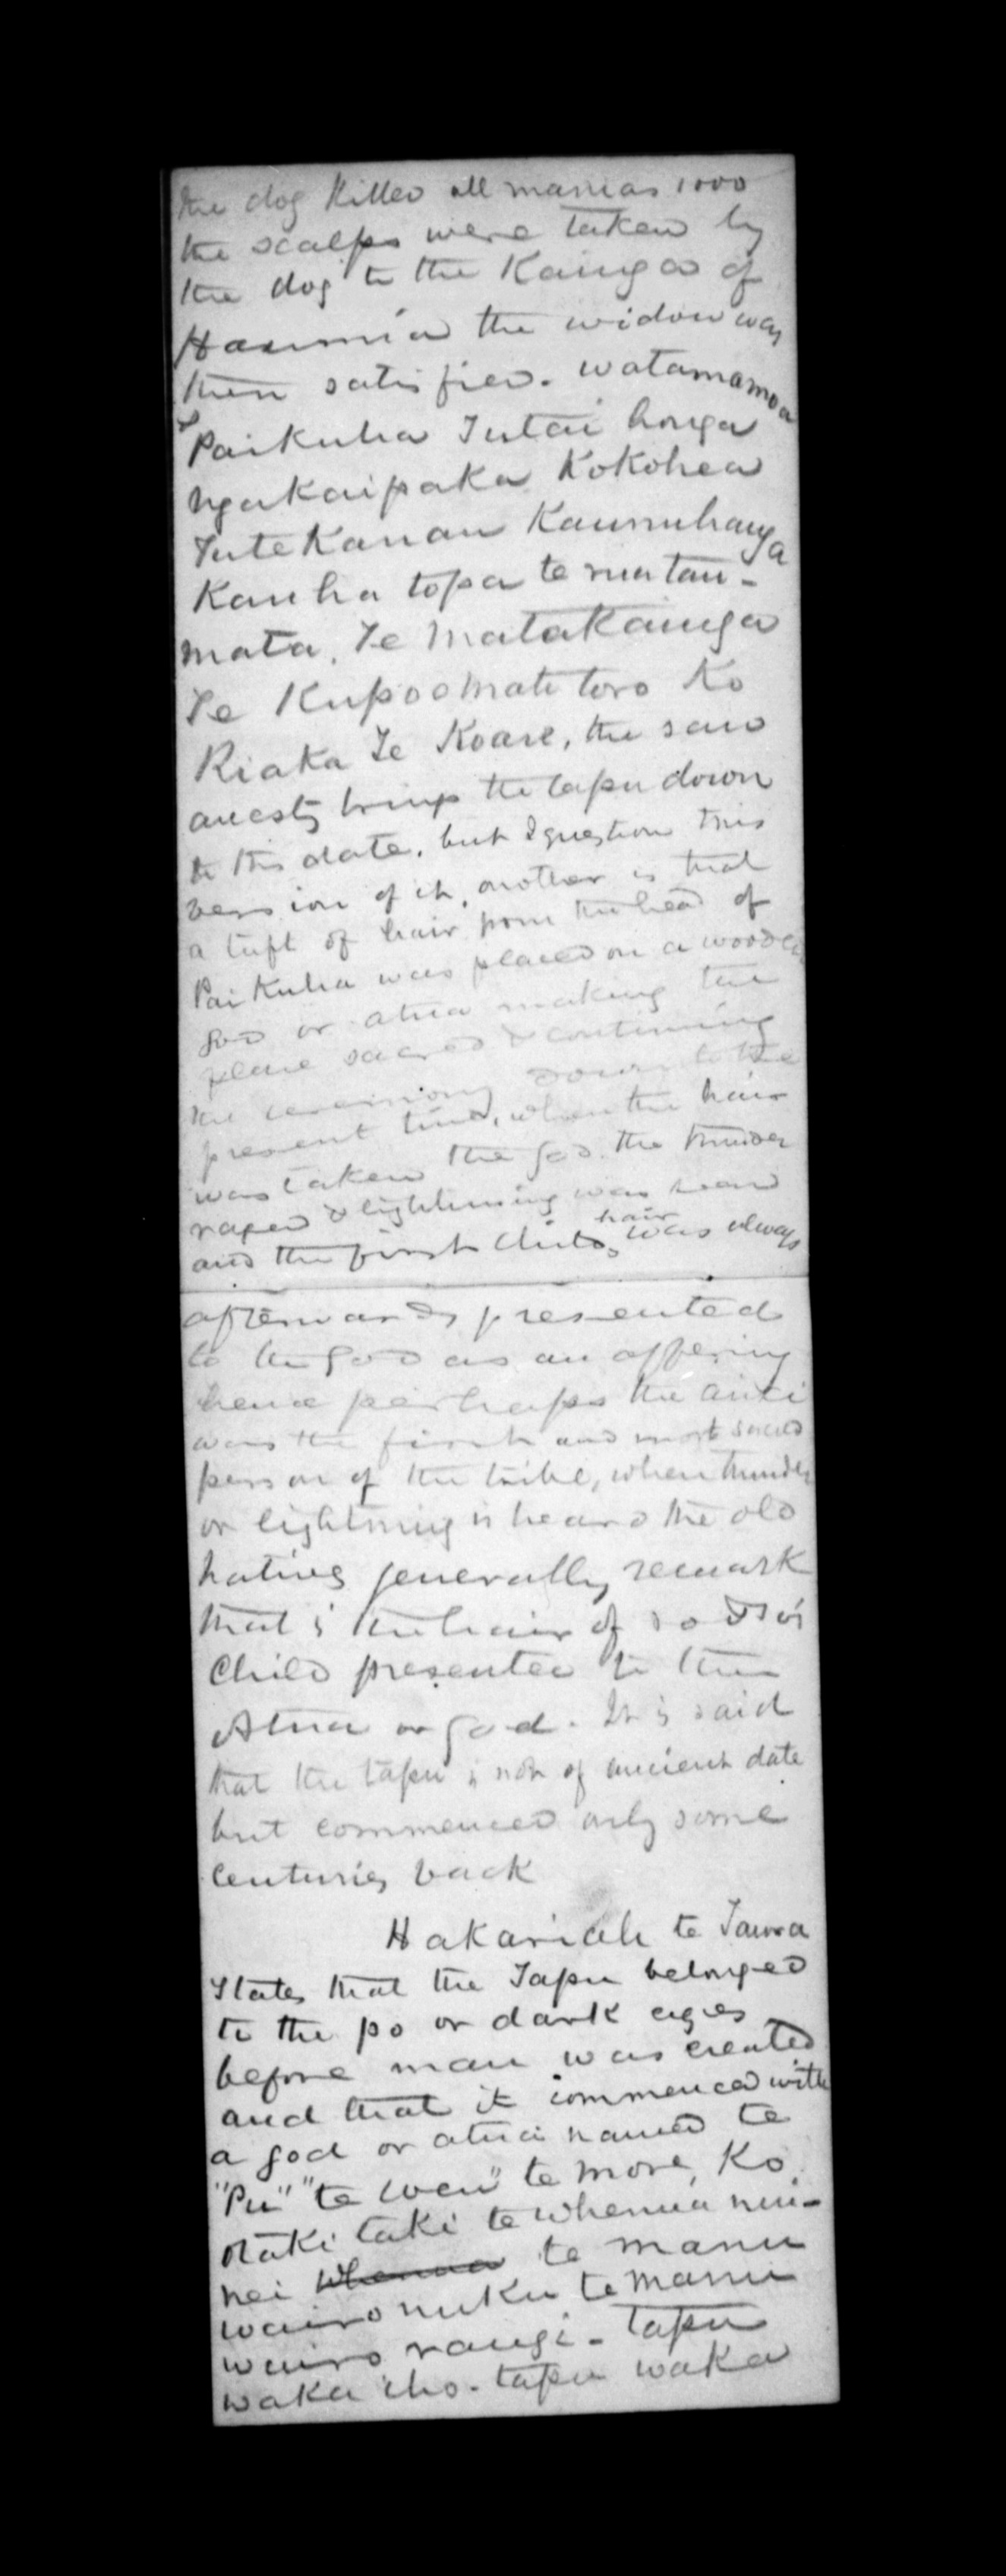 the dog Killed all manias 1000
the scalps were taken by
the dog to the Kainga of
Haumia the widow was
then satisfied. watamamoa
Paikuha Tutai honga
ngakaipaka Kokohea
TuteKanau Kaumuhanga
Kauha topa te ruatau-
mata, Te Matakainga
Te Kupoomate toro Ko
Riaka Te Koare, the said
ancesty brings the tapu down
to this date, but I question this
version of it, another is that
a tuft of hair from the head of
Paikuha was placed on a wooden
god or atua making the
place sacred & continuing
the ceremony down to the
present time, when the hair
was taken the god. the thunder
raged & lightning was heard
and the first childs hair was always
afterwards presented
to the god as an offering
hence perhaps the ariki
was the first and most sacred
person of the tribe, when thunder
or lightning is heard the old
natives generally remark
that is the hair of so & so's
Child presented to the
Atua or god. It is said
that the tapu is not of ancient date
but commenced only some
Centuries back
Hakariah te Tawa
States that the Tapu belonged
to the po or dark ages
before man was created
and that it commenced with
a god or atua named te
"Pu" "te weu" te more, Ko
otaki taki te whenua nui-
nei whenua te manu
wairo nuku te manu
wairo rangi - tapu
waka iho. tapu waka